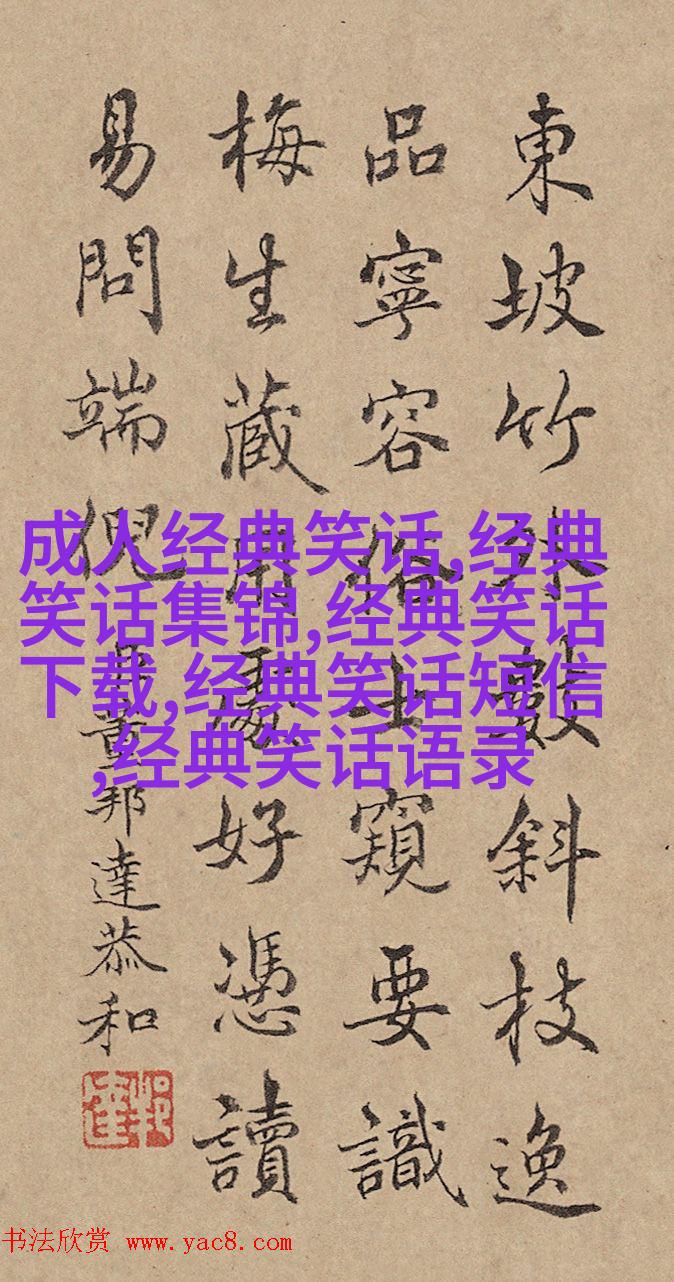 東坡竹外數斜枝逸
品寧容俗士窺要識
梅生蔵用處好憑讀
易問端倪
臣董邦達恭和
成人经典笑话,经典
笑话集锦,经典笑话
下载,经典笑话短信
,经典笑话语录
书法欣赏 www.yac8.com